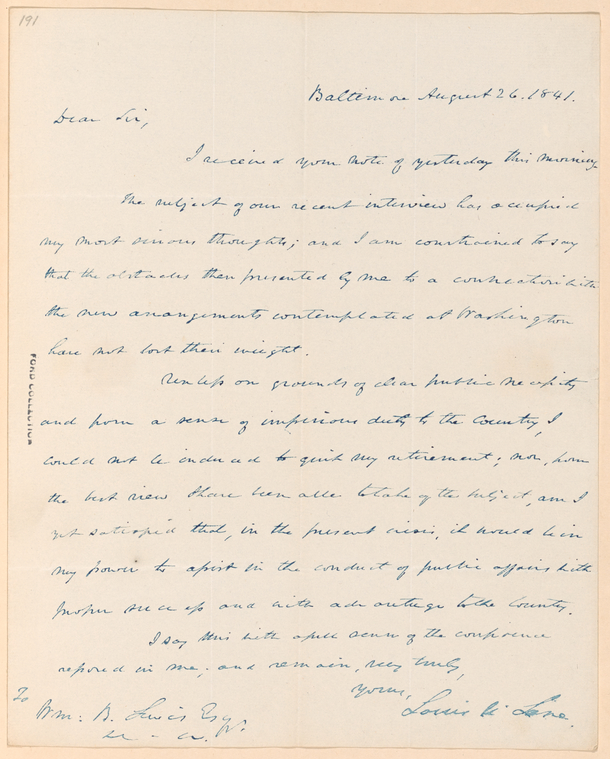 191
Baltimore August 26. 1841.
Dear Sir,
I received your note of yesterday this morning
The subject of our recent interview has occupied
my most serious thoughts; and I am constrained to say
that the obstacles then presented by me to a connection with
the new arrangements contemplated at Washington
have not lost their weight.
Unless on grounds of clear public necessity
and from a sense of imperious duty to the Country, I
could not be induced to quit my retirement; nor, from
the best view I have been able to take of the subject, am I
yet satisfied that, in the present crisis, it would be in
my power to assist in the conduct of public affairs with
proper success and with advantage to the Country.
I say this with a full sense of the confidence
reposed in me; and remain, very truly,
yours,
Louis McLane.
To
Wm: B. Lewis Esqr.
FORD COLLECTION